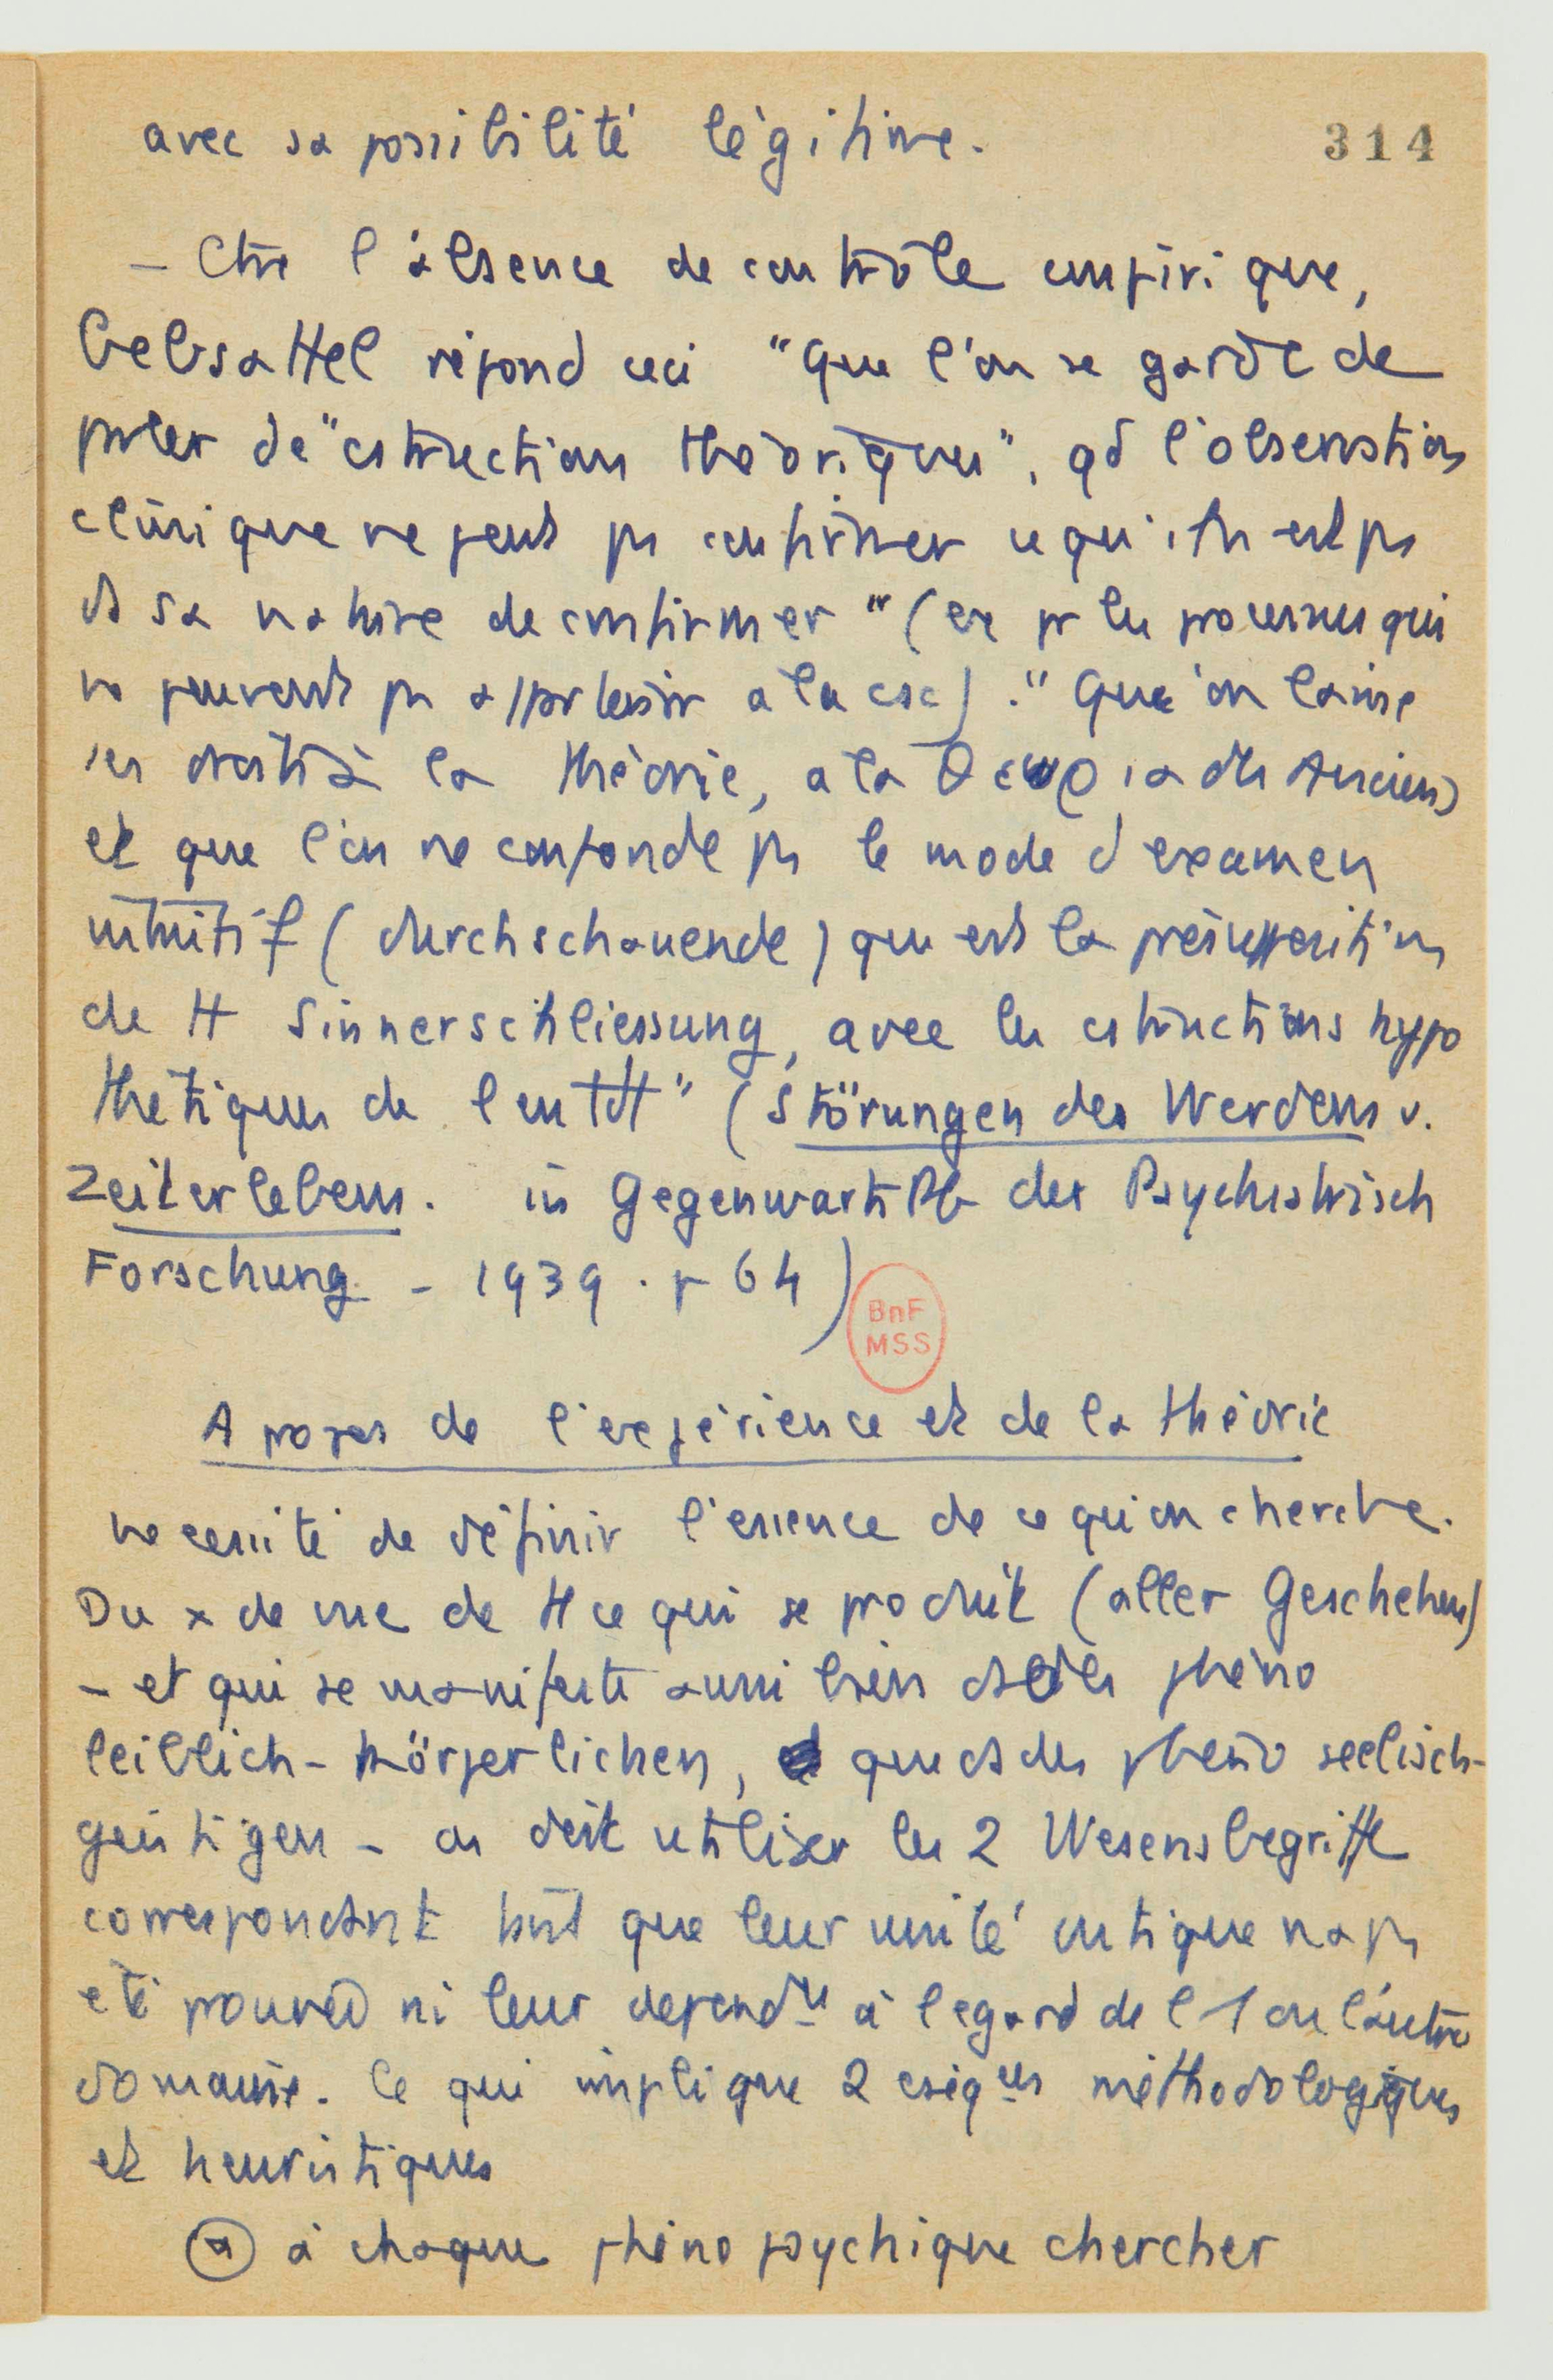 avec sa possibilité légitime.
314
– Ctre l'absence de contrôle empirique,
Gebsattel répond ceci "Que l'on se garde de
prler de "cstructions théoriques", qd l'observation
clinique ne peut ps confirmer ce qu'il n'est ps
ds sa nature de confirmer" (ex pr les processus qui
ne peuvent ps apprtenir à la csc). "Que l'on laisse
ses droits à la théorie, à la θεωρια des Anciens
et que l'on ne confonde ps le mode d'examen
intuitif (durchschauende) qui est la présupposition
de tt Sinnerschliessung, avec les cstructions hypo
thétiques de l'entdt" (Störungen des Werdens u.
Zeiterlebens. in Gegenwart Pb der Psychiatrisch
Forschung – 1939. p 64)
BnF
MSS
A propos de l'expérience et de la théorie
nécessité de définir l'essence de ce qu'on cherche.
Du x de vue de tt ce qui se produit (aller Geschehens)
– et qui se manifeste aussi bien ds des phéno
leiblich-körperlichen, que ds des phéno seelisch-
geistigen – on doit utiliser les 2 Wesensbegriffe
correspondant tant que leur unité ontique n'a ps
été prouvée ni leur depend^ce à l'égard de l'1 ou l'autre
domaine. Ce qui implique 2 cséq^ces méthodologiques
et heuristiques
(a) à chaque phéno psychique chercher